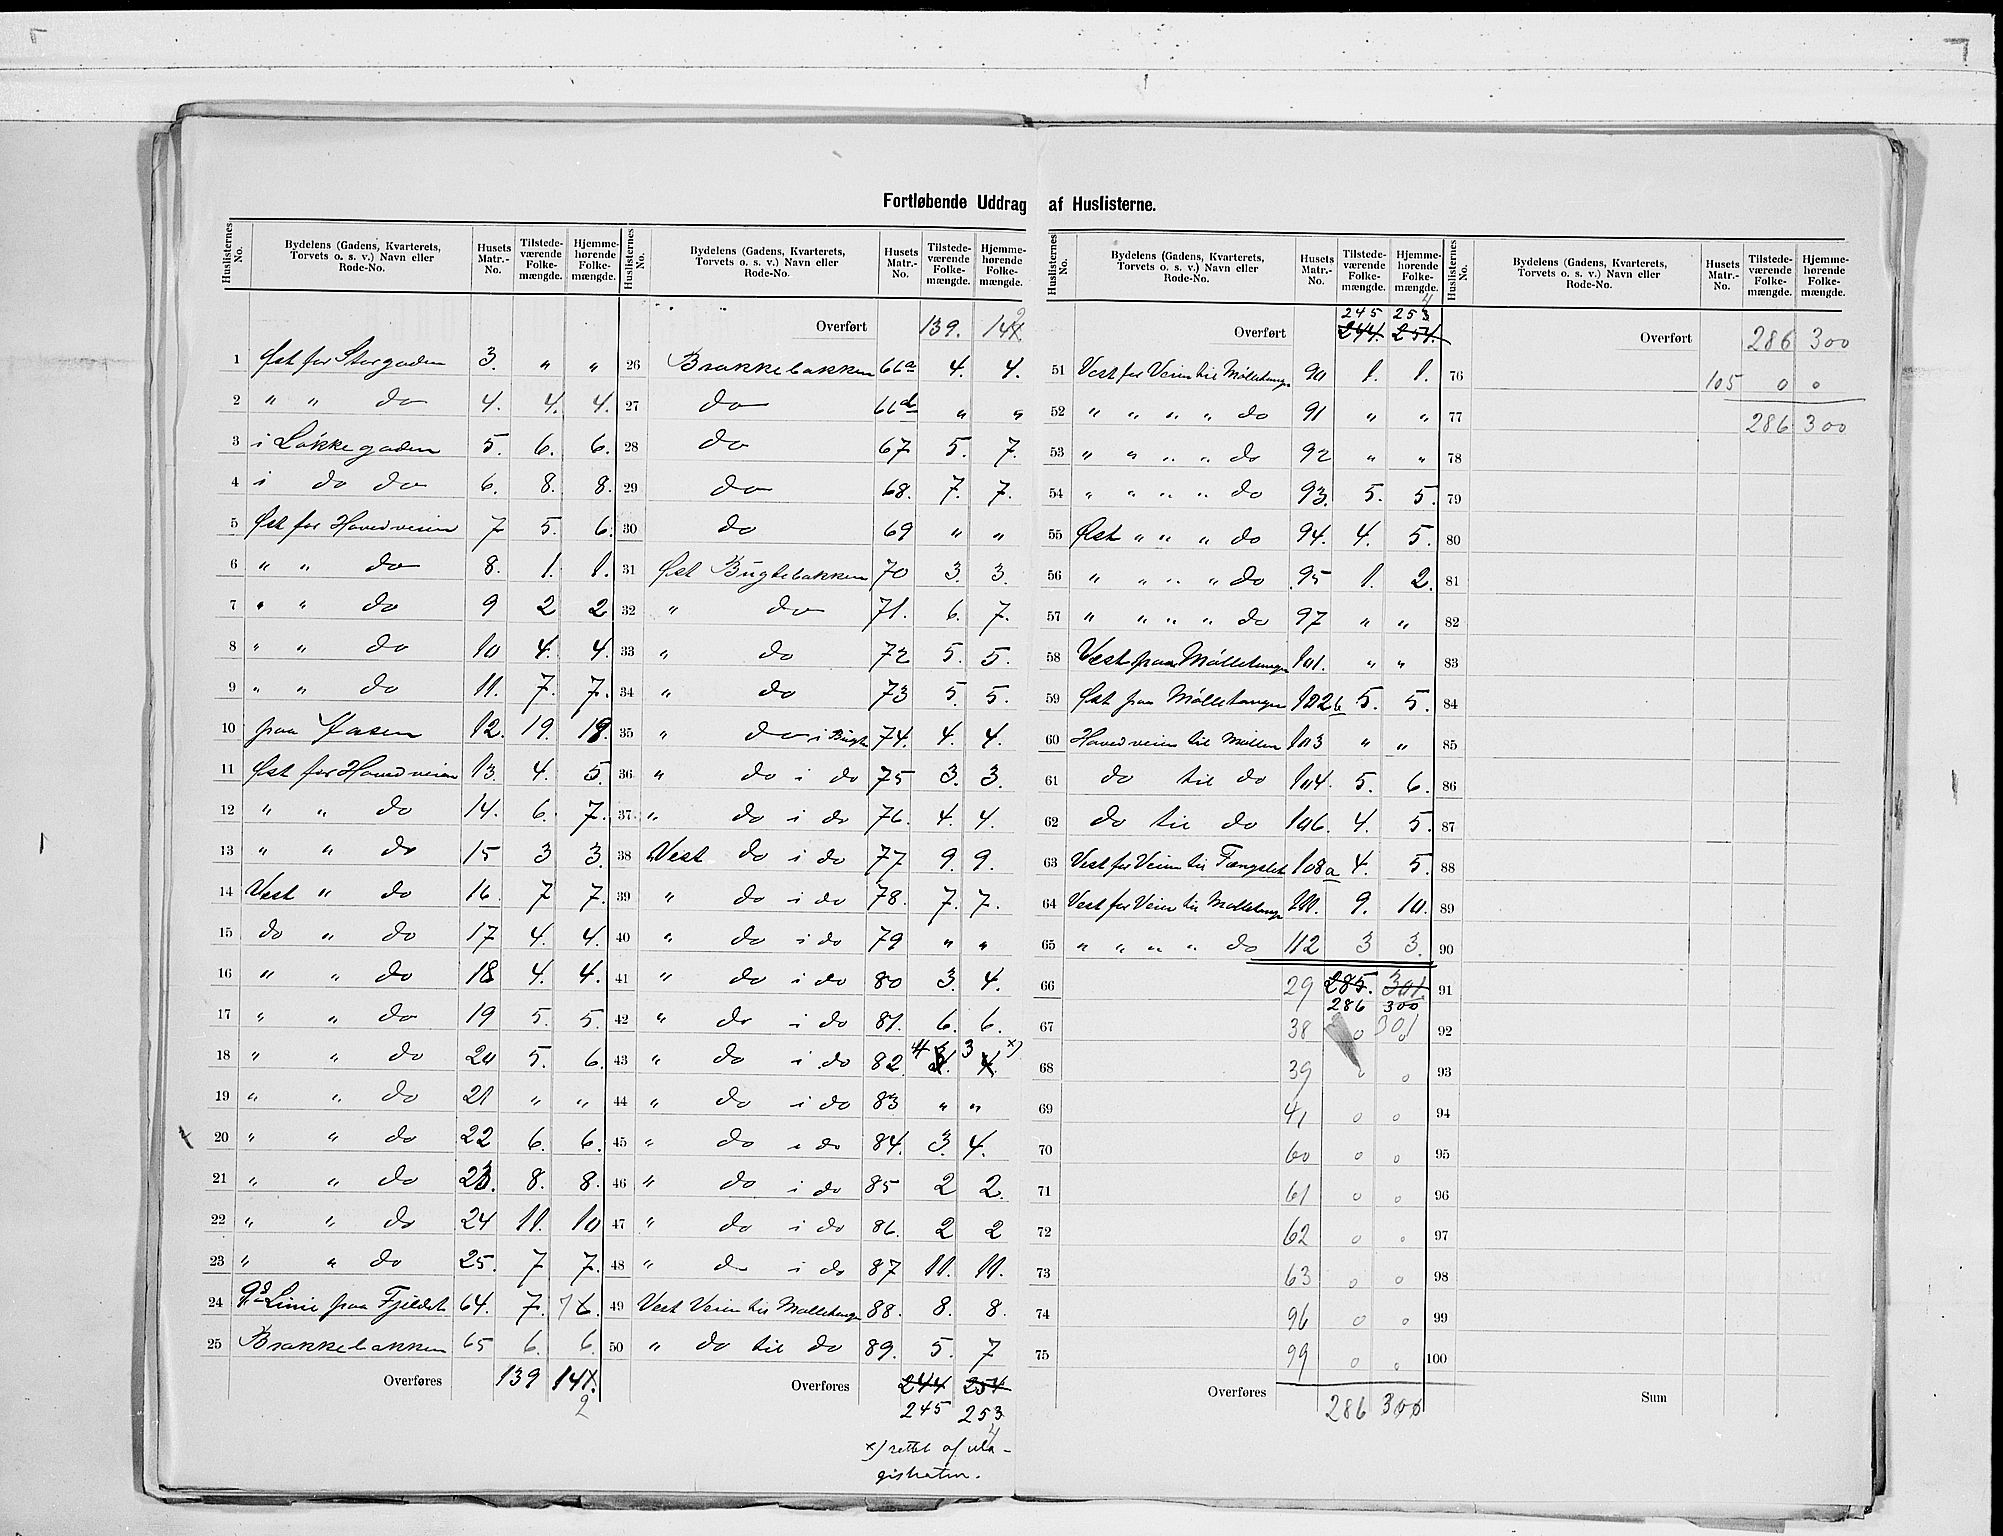 Fortløbende Uddrag af Huslisterne.
Huslisternes No. | Bydelens (Gadens, Kvarterets, Torvets o. s. v.) Navn eller Rode-No. | Husets Matr.-No. | Tilstedeværende Folkemængde. | Hjemmehørende Folkemængde.
1 Øst for Storgaden 3. " "
2 " " do 4. 4. 4.
3 i Løkkegaden 5. 6. 6.
4 i do do 6. 8. 8.
5 Øst for Hovedveien 7 5. 6.
6 " " do 8. 1. 1.
7 " " do 9 2 2
8 " " do 10 4. 4.
9 " " do 11. 7. 7.
10 paa 12. 19. 19.
11 Øst for Hovedveien 13. 4. 5.
12 " " do 14. 6. 7.
13 " " do 15 3 3.
14 Vest " do 16. 7 7.
15 do " do 17 4. 4.
16 " " do 18 4. 4.
17 " " do 19 5. 5.
18 " " do 20 5. 6.
19 " " do 21 " "
20 " " do 22 6. 6.
21 " " do 23. 8. 8.
22 " " do 24 11. 10
23 " " do 25. 7 7.
24 Linie paa Fjeldet 64. 7. 7
25 Brakkebakken 65 6. 6.
Overføres 139 141.
2
Huslisternes No. | Bydelens (Gadens, Kvarterets, Torvets o. s. v.) Navn eller Rode-No. | Husets Matr.-No. | Tilstedeværende Folkemængde. | Hjemmehørende Folkemængde.
Overført 139. 142
26 Brakkebakken 66a 4. 4.
27 do 66b " "
28 do 67 5. 7.
29 do 68. 7. 7.
30 do 69 " "
31 Øst Bugtebakken 70 3. 3.
32 " do 71. 6. 7.
33 " do 72 5. 5.
34 " do 73 5. 5.
35 " do i Bugta 74. 4. 4.
36 " do i do 75 3. 3.
37 " do i do 76. 4. 4.
38 Vest do i do 77 9. 9.
39 " do i do 78. 7. 7.
40 " do i do 79 " "
41 " do i do 80 3. 4.
42 " do i do 81. 6. 6.
43 " do i do 82. 4 3 x)
44 " do i do 83 " "
45 " do i do 84. 3. 4.
46 " do i do 85 2 2.
47 " do i do 86. 2 2
48 " do i do 87 11. 11.
49 Vest Veien til Mølletangen 88. 8. 8.
50 " do til do 89. 5. 7
Overføres 244 254
245 253
4
x) rettet af Ma-
gistraten.
Huslisternes No. | Bydelens (Gadens, Kvarterets, Torvets o. s. v.) Navn eller Rode-No. | Husets Matr.-No. | Tilstedeværende Folkemængde. | Hjemmehørende Folkemængde.
4
245 253
Overført 244. 254.
51 Vest for Veien til Mølletangen 90 1. 1.
52 " " " " do 91 " "
53 " " " " do 92 " "
54 " " " " do 93. 5. 5.
55 Øst " " " do 94. 4. 5.
56 " " " " do 95 1. 2.
57 " " " " do 97 " "
58 Vest paa Mølletangen 101. " "
59 Øst paa Mølletangen 102b 5. 5.
60 Hovedveien til Møllen 103 " "
61 do til do 104. 5. 6.
62 do til do 106. 4. 5.
63 Vest for Veien til Fængslet 108a 4. 5.
64 Vest for Veien til Mølletangen 111. 9. 10.
65 " " " " do 112 3 3.
66 29 285. 301.
286 300
67 38 0 301
68 39 0 0
69 41 0 0
70 60 0 0
71 61 0 0
72 62 0 0
73 63 0 0
74 96 0 0
75 99 0 0
Overføres 286 300
Huslisternes No. | Bydelens (Gadens, Kvarterets, Torvets o. s. v.) Navn eller Rode-No. | Husets Matr.-No. | Tilstedeværende Folkemængde. | Hjemmehørende Folkemængde.
Overført 286 300
76 105 0 0
77 286 300
78
79
80
81
82
83
84
85
86
87
88
89
90
91
92
93
94
95
96
97
98
99
100
Sum